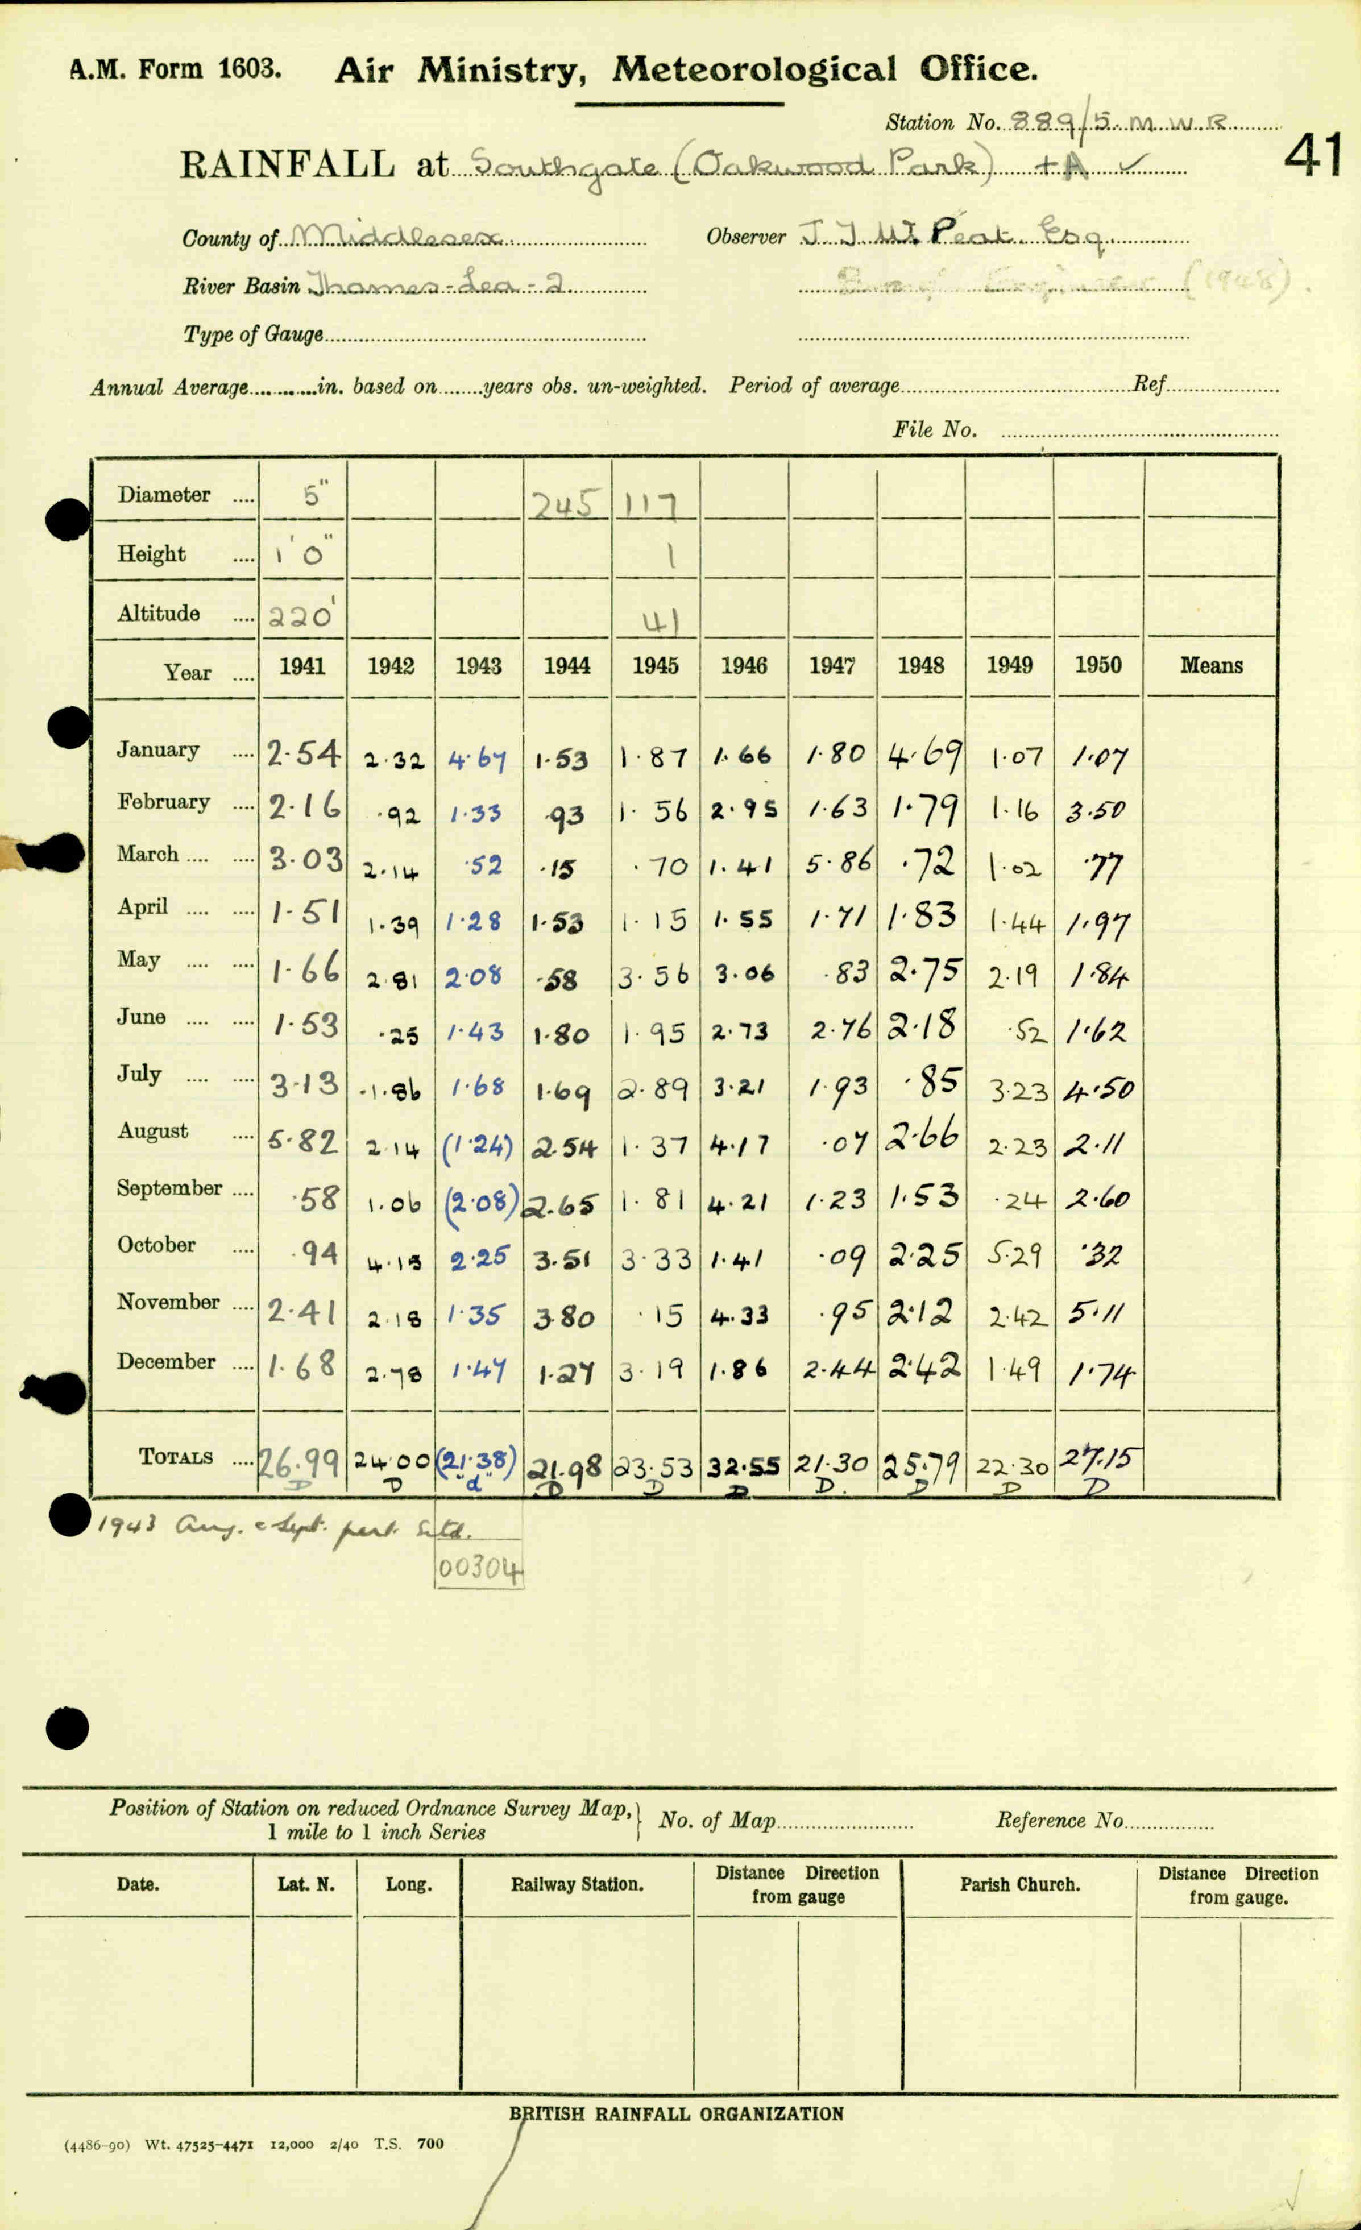 A.M. Form 1603. Air Ministry, Meteorological Office.
Station No. 889/5. M.W.R.
41
RAINFALL at Southgate (Oakwood Park) +A ✓
County of Middlesex Observer Peat. Esq.
River Basin Thames-Lea-2 Engineer (1948).
Type of Gauge
Annual Average in. based on years obs. un-weighted. Period of average Ref
File No.
Diameter .... 5" 245 117
Height .... 1'0" 1
Altitude .... 220' 41
Year .... 1941 1942 1943 1944 1945 1946 1947 1948 1949 1950 Means
January .... 2.54 2.32 4.67 1.53 1.87 1.66 1.80 4.69 1.07 1.07
February .... 2.16 .92 1.33 .93 1.56 2.95 1.63 1.79 1.16 3.50
March .... .... 3.03 2.14 .52 .15 .70 1.41 5.86 .72 1.02 .77
April .... .... 1.51 1.39 1.28 1.53 1.15 1.55 1.71 1.83 1.44 1.97
May .... .... 1.66 2.81 2.08 .58 3.56 3.06 .83 2.75 2.19 1.84
June .... .... 1.53 .25 1.43 1.80 1.95 2.73 2.76 2.18 .52 1.62
July .... .... 3.13 1.86 1.68 1.69 2.89 3.21 1.93 .85 3.23 4.50
August .... 5.82 2.14 (1.24) 2.54 1.37 4.17 .07 2.66 2.23 2.11
September .... .58 1.06 (2.08) 2.65 1.81 4.21 1.23 1.53 .24 2.60
October .... .94 4.15 2.25 3.51 3.33 1.41 .09 2.25 5.29 .32
November .... 2.41 2.18 1.35 3.80 .15 4.33 .95 2.12 2.42 5.11
December .... 1.68 2.78 1.47 1.27 3.19 1.86 2.44 2.42 1.49 1.74
TOTALS .... 26.99 24.00 (21.38) 21.98 23.53 32.55 21.30 25.79 22.30 27.15
D D "d" D D D D. D D D
1943 Aug. & Sept. part Estd.
00304
Position of Station on reduced Ordnance Survey Map, 1 mile to 1 inch Series } No. of Map Reference No.
Date. Lat. N. Long. Railway Station. Distance Direction from gauge Parish Church. Distance Direction from gauge.
BRITISH RAINFALL ORGANIZATION
(4486-90) Wt. 47525-4471 12,000 2/40 T.S. 700